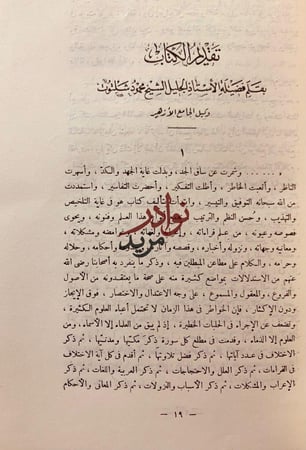 تقديم الكتاب
بقلم فضيلة الأستاذ الجليل الشيخ محمود شلتوت
وكيل الجامع الأزهر
١
« ... وشمرت عن ساق الجد، وبذلت غاية الجهد والكد، وأسهرت
الناظر، وأتعبت الخاطر، وأطلت التفكير، وأحضرت التفاسير، واستمددت
من الله سبحانه التوفيق والتيسير، وابتدأت بتأليف كتاب هو في غاية التلخيص
والتهذيب، وحسن النظم والترتيب هذا العلم وفنونه، ويحوي
نصوصه وعيونه، من علم قراءاته، وإعرابه ولغاته، وغوامضه ومشكلاته،
ومعانيه وجهاته، ونزوله وأخباره، وقصصه وآثاره، وحدوده وأحكامه، وحلاله
وحرامه، والكلام على مطاعن المبطلين فيه، وذكر ما ينفرد به أصحابنا رضي الله
عنهم من الاستدلالات بمواضع كثيرة منه على صحة ما يعتقدونه من الأصول
والفروع، والمعقول والمسموع، على وجه الاعتدال والاختصار، فوق الإيجاز
ودون الإكثار، فإن الخواطر في هذا الزمان لا تحتمل أعباء العلوم الكثيرة،
وتضعف عن الإجراء في الحلبات الخطيرة، إذ لم يبق من العلماء إلا الأسماء، ومن
العلوم إلا الذماء، وقدمت في مطلع كل سورة ذكر مكيها ومدنيها، ثم ذكر
الاختلاف في عدد آياتها، ثم ذكر فضل تلاوتها، ثم أقدم في كل آية الاختلاف
في القراءات، ثم ذكر العلل والاحتجاجات، ثم ذكر العربية واللغات، ثم ذكر
الإعراب والمشكلات، ثم ذكر الأسباب والنزولات، ثم ذكر المعاني والأحكام
— ١٩ —
نوادر
مزيد